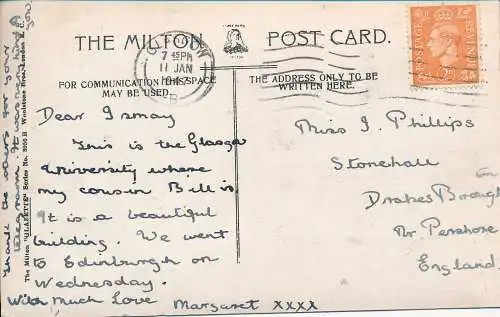 THE MILTON POST CARD.
7 45 PM
11 JAN
FOR COMMUNICATION THIS SPACE
MAY BE USED.
THE ADDRESS ONLY TO BE
WRITTEN HERE.
POSTAGE
Dear Ismay
This is the Glasgo
University where
my cousin Bill is.
It is a beautiful
building. We went
to Edinburgh on
Wednesday.
With Much Love Margaret xxxx
Miss I. Phillips
Stonehall
Drakes Brough
Nr Pershore
England.
Thank the others for your
you
The Milton "GLAZETTE" Series No. Woolstone Bros., London E. C.